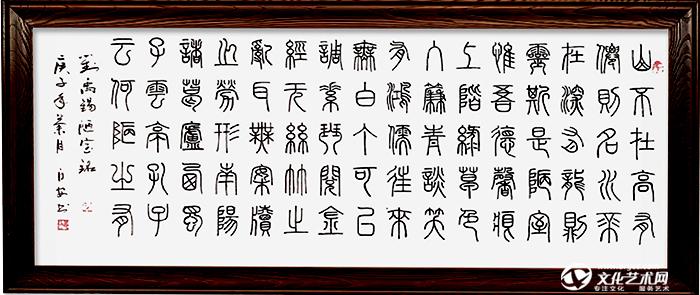 山不在高有
僊則名水不
在深有龍則
靈斯是陋室
惟吾德馨痕
上階綠草色
入簾青談笑
有鴻儒往來
無白丁可以
調素琴閱金
經无絲竹之
亂耳無案牘
之勞形南陽
諸葛廬西蜀
子雲亭孔子
云何陋之有
劉禹錫陋室銘
庚子年月
文化艺术网
专注文化 服务艺术